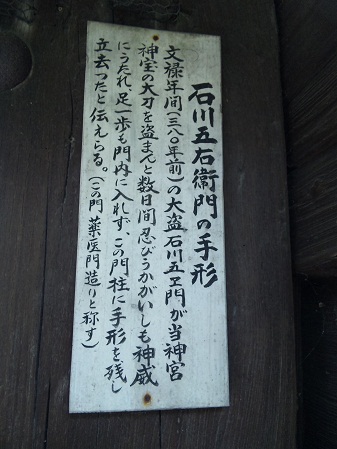 石川五右衛門の手形
文禄年間(三八〇年前)の大盗石川五ヱ門が当神宮
神宝の大刀を盗まんと数日間忍びうかがいしも神威
にうたれ、足一歩も門内に入れず、この門柱に手形を残し
立去ったと伝えらる。(この門 薬医門造りと称す)